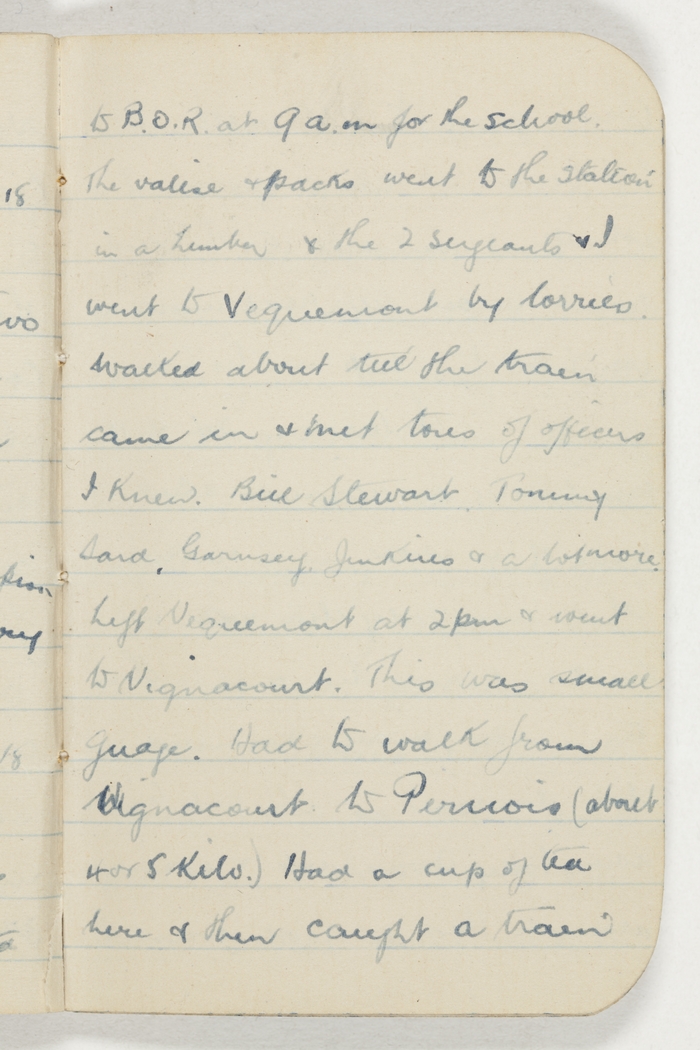 18
to B.O.R. at 9 a.m for the school.
The valise & packs went to the station
in a limber & the 2 sergeants & I
went to Vequemont by lorries.
Walked about till the train
came in & met tons of officers
I knew. Bill Stewart. Tommy
Sard, Garnsey, Jenkins & a lot more.
Left Vequemont at 2pm & went
to Vignacourt. This was small
guage. Had to walk from
Vignacourt to Pernois (about
4 or 5 Kilo.) Had a cup of tea
here & then caught a train